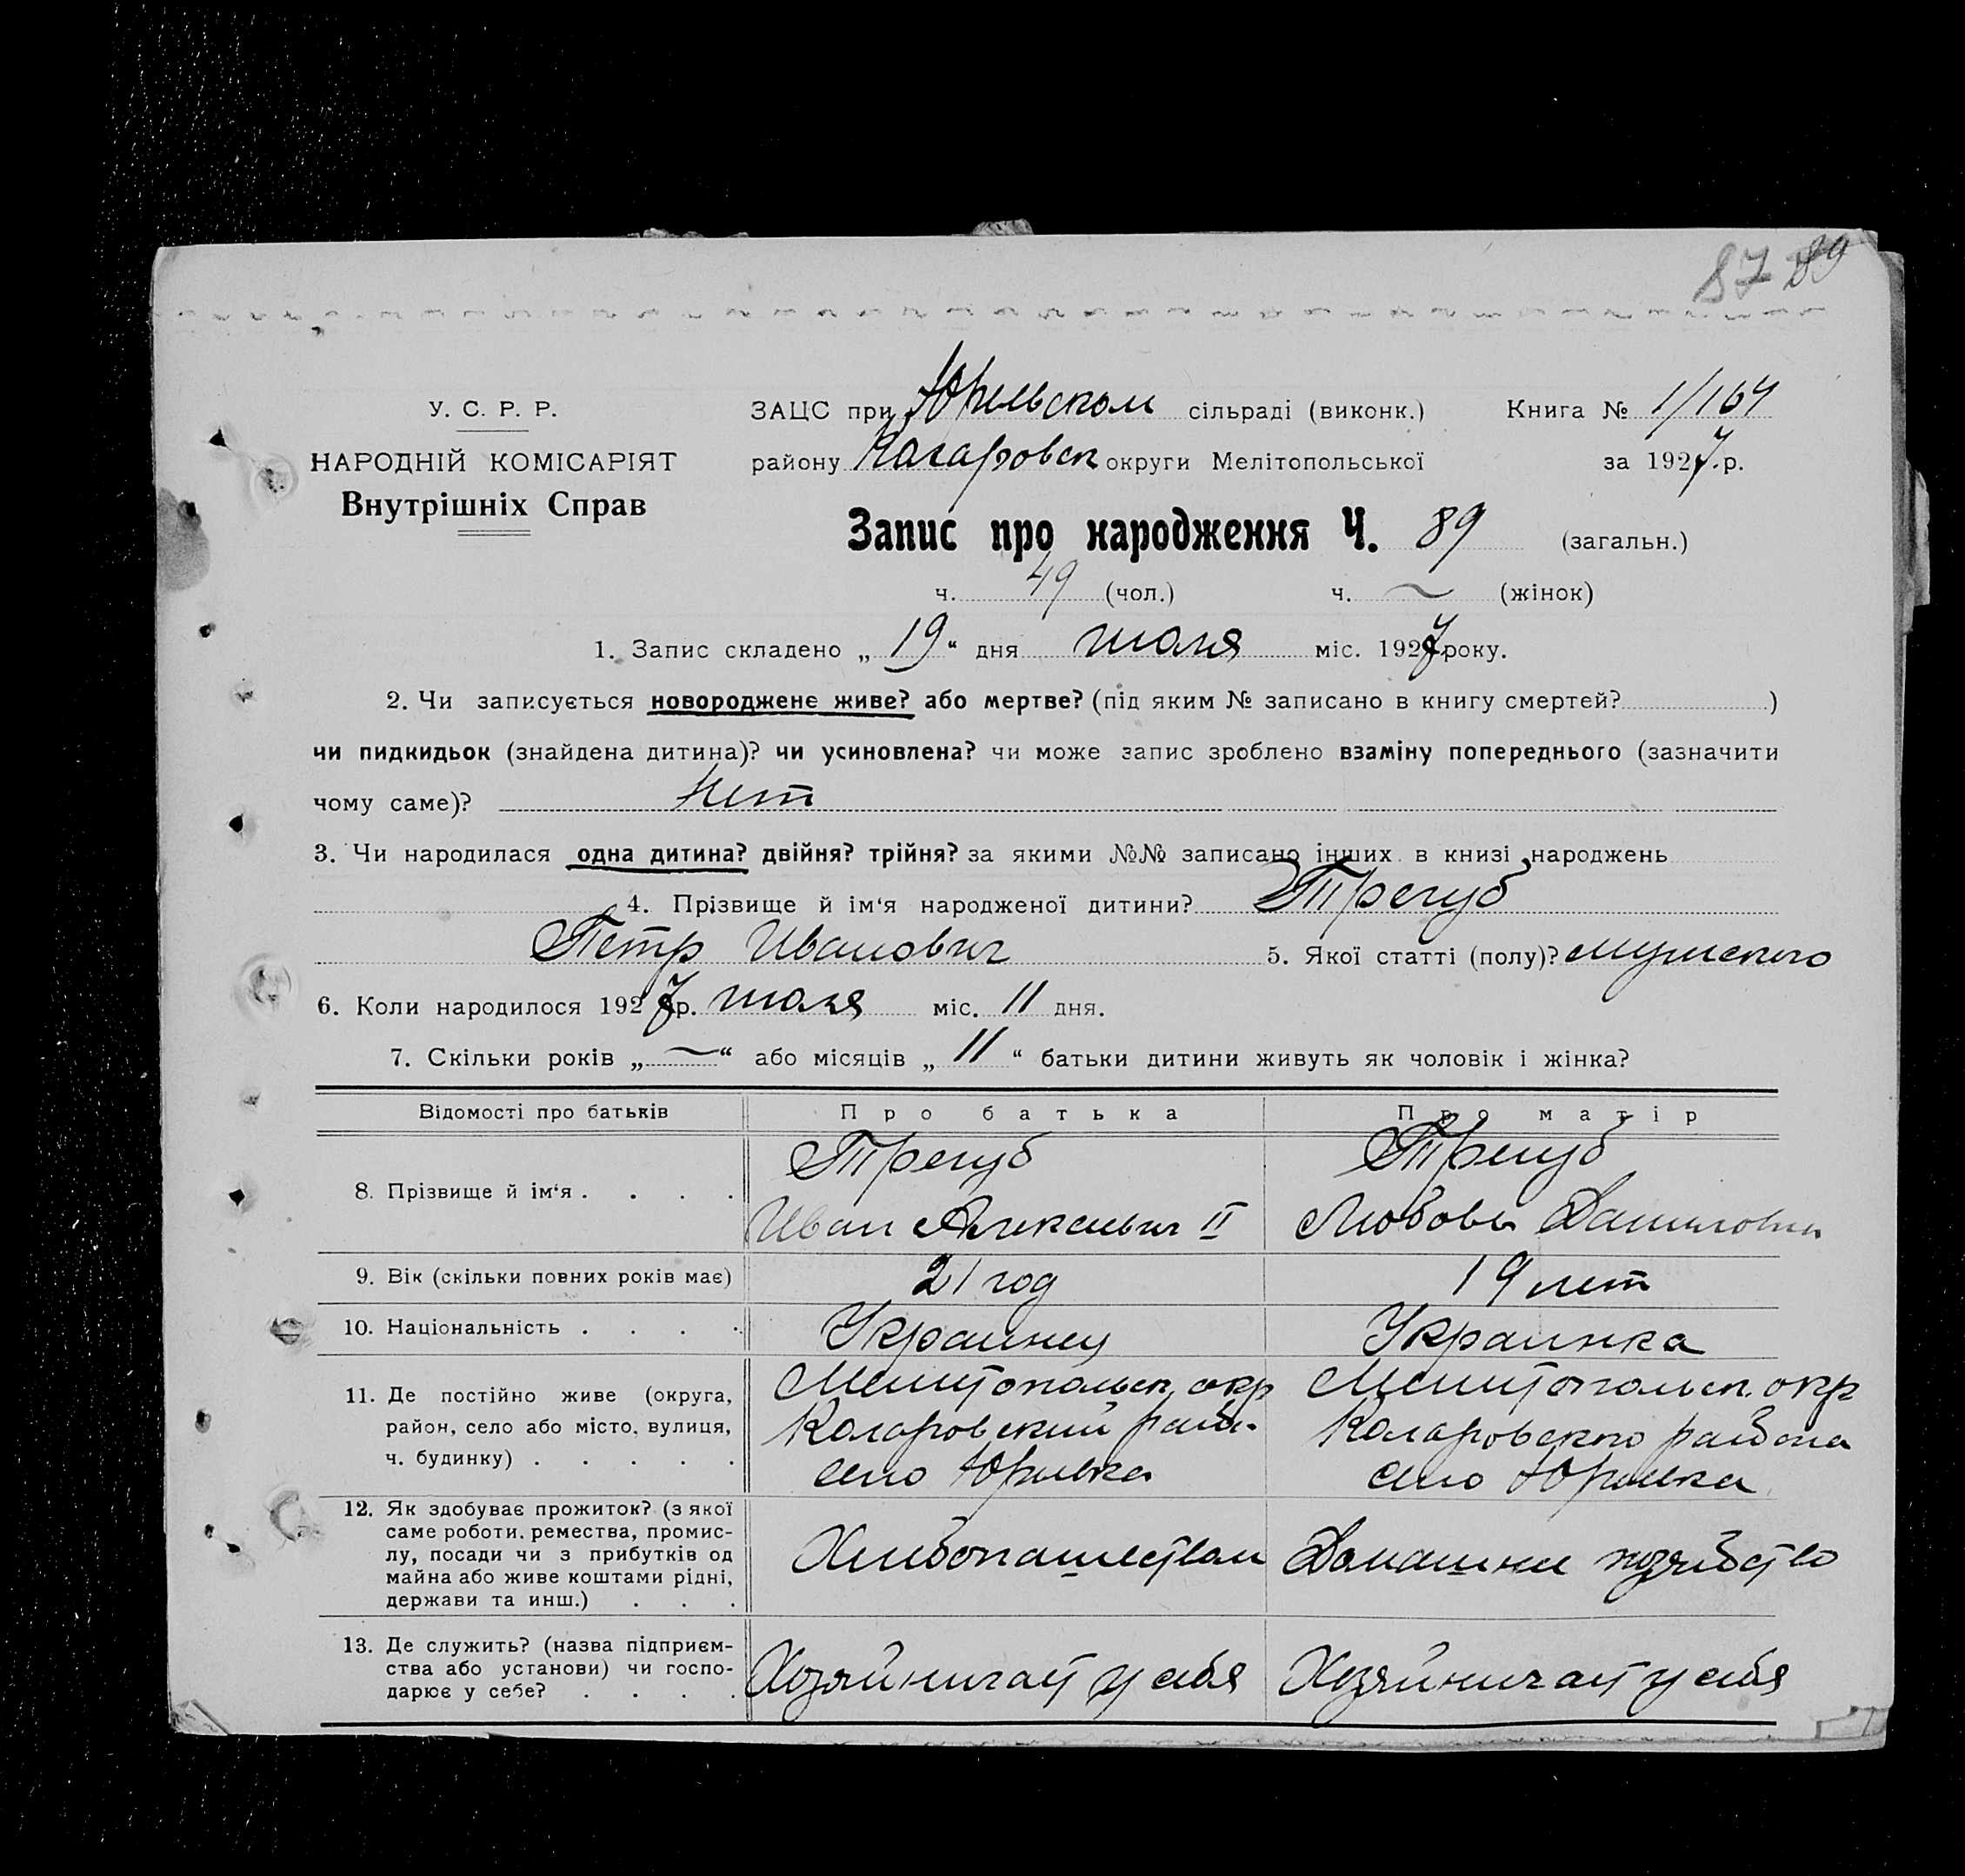 87 89
У. С. Р. Р.
НАРОДНІЙ КОМІСАРІЯТ
Внутрішніх Справ
ЗАЦС при Юрьевском сільраді (виконк.) Книга № 1/164
району Коларовск округи Мелітопольської за 1927 р.
Запис про народження Ч. 89 (загальн.)
ч. 49 (чол.) ч. ~ (жінок)
1. Запис складено „ 19 “ дня июля міс. 1927 року.
2. Чи записується новороджене живе? або мертве? (під яким № записано в книгу смертей? )
чи пидкидьок (знайдена дитина)? чи усиновлена? чи може запис зроблено взаміну попереднього (зазначити
чому саме)? Нет
3. Чи народилася одна дитина? двійня? трійня? за якими №№ записано інших в книзі народжень
4. Прізвище й ім‘я народженої дитини? Трегуб
Петр Иванович 5. Якої статті (полу)? мужского
6. Коли народилося 1927 р. июля міс. 11 дня.
7. Скільки років „ ~ “ або місяців „ 11 “ батьки дитини живуть як чоловік і жінка?
Відомості про батьків Про батька Про матір
8. Прізвище й ім‘я . . . . Трегуб Трегуб
Иван Алексеевич II Любовь Даниловна
9. Вік (скільки повних років має) 21 год 19 лет
10. Національність . . . . Украинец Украинка
11. Де постійно живе (округа, Мелитопольск. окр Мелитопольск. окр
район, село або місто, вулиця, Коларовский район Коларовского района
ч. будинку) . . . . . село Юрьевка село Юрьевка
12. Як здобуває прожиток? (з якої
саме роботи, ремества, промис-
лу, посади чи з прибутків од Хлибопашеством Домашнее хозяйство
майна або живе коштами рідні,
держави та инш.) . . .
13. Де служить? (назва підприєм-
ства або установи) чи госпо- Хозяйничает у себя Хозяйничает у себя
дарює у себе? . . . .